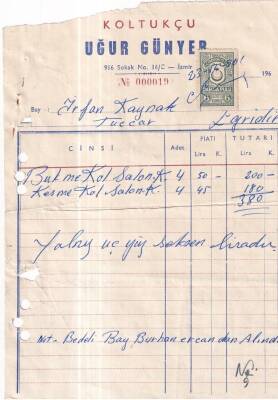 KOLTUKÇU
UĞUR GÜNYER
956 Sokak No. 16/C — İzmir
№ 000019
196
Bay : İrfan Kaynak Eğridir
Tüccar
CİNSİ Adet FİATI TUTARI
Lira K. Lira K.
Bükme Kol Salon.K. 4 50 - 200 -
Kesme Kol Salon K. 4 45 180
380
Yalnız üç yüz seksen liradır.
Not - Bedeli Bay Burhan ercan dan Alındı